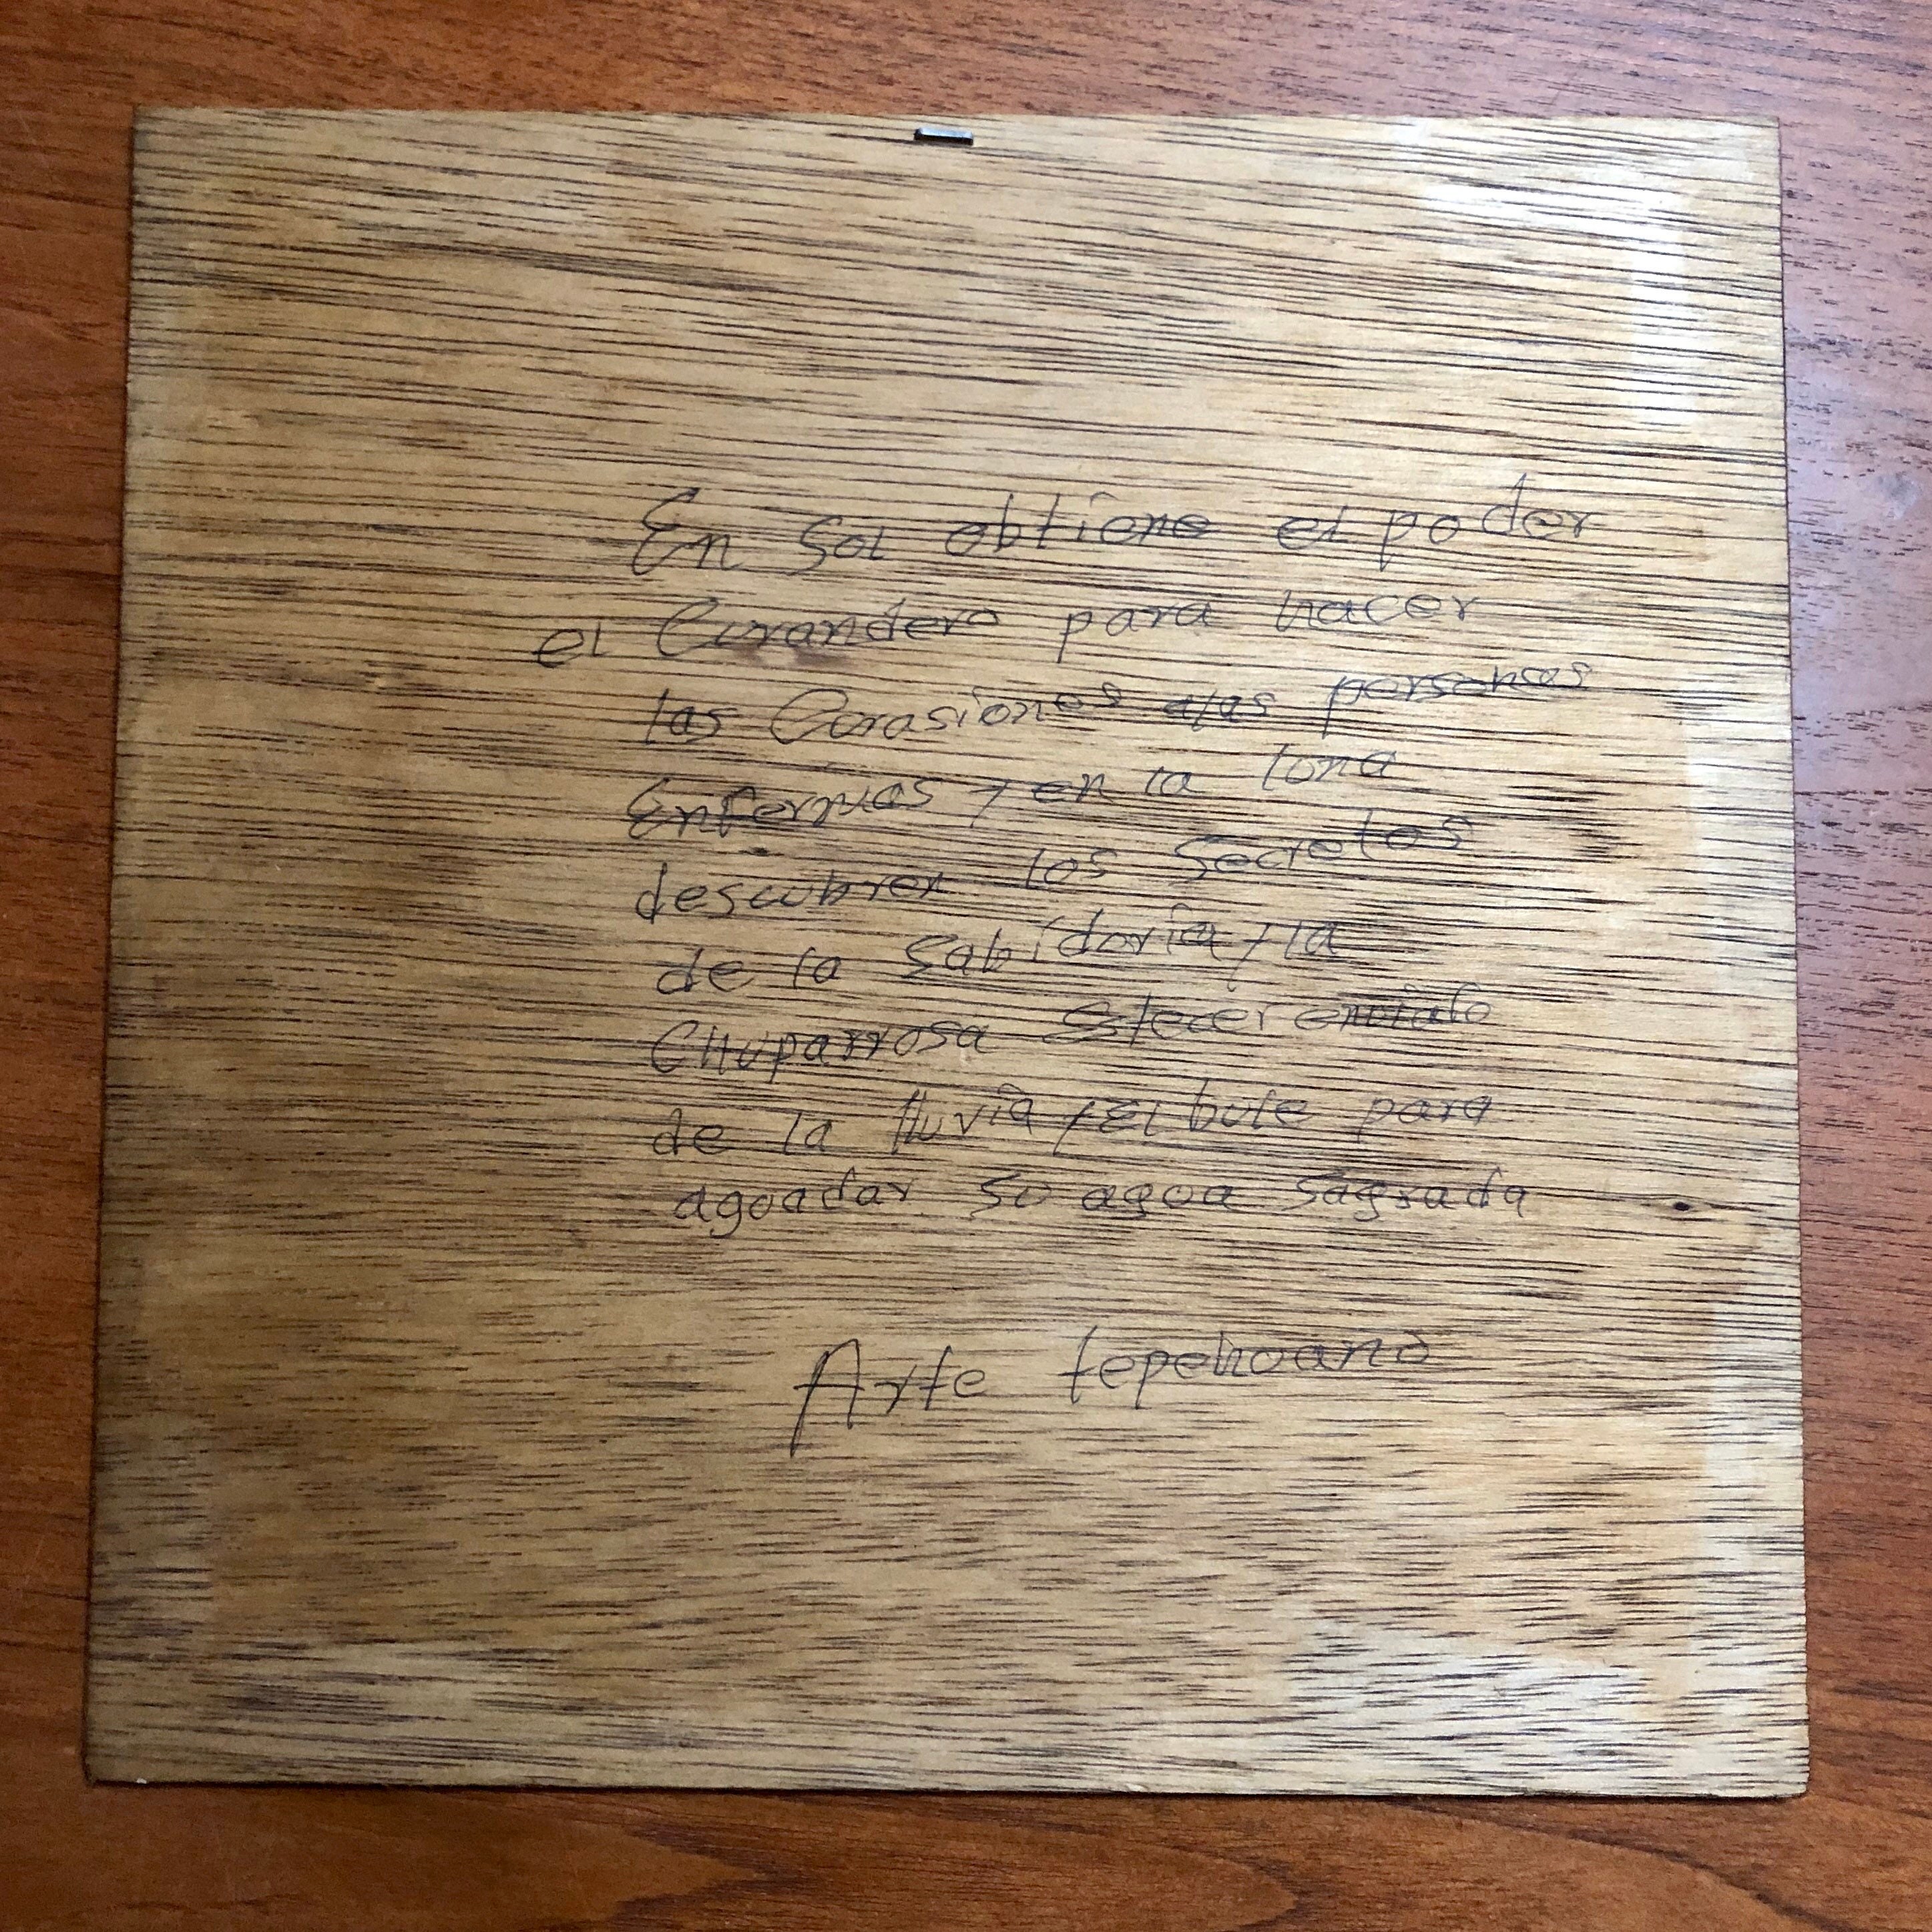 En Sol obtiene el poder
el Curandero para hacer
las Curasiones alas personas
Enfermas y en la lona
descubren los Secretos
de la Sabidoria y la
Chuparrosa Estecer emialo
de la lluvia y El bule para
agoadar so agoa sagrada
Arte tepehoano